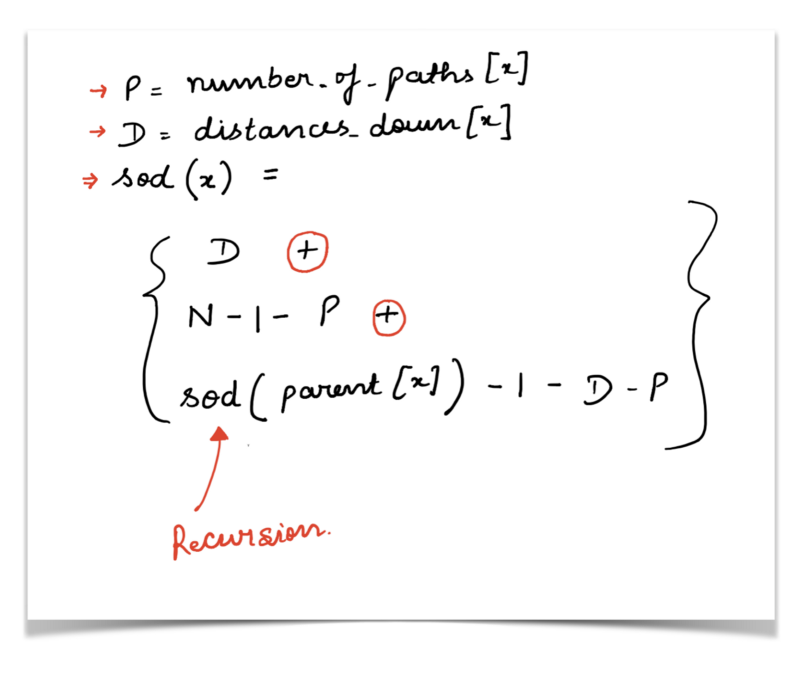 → P = number_of_paths[x]
→ D = distances_down[x]
⇒ sod(x) =
{ D + }
N - 1 - P +
sod(parent[x]) - 1 - D - P
Recursion.